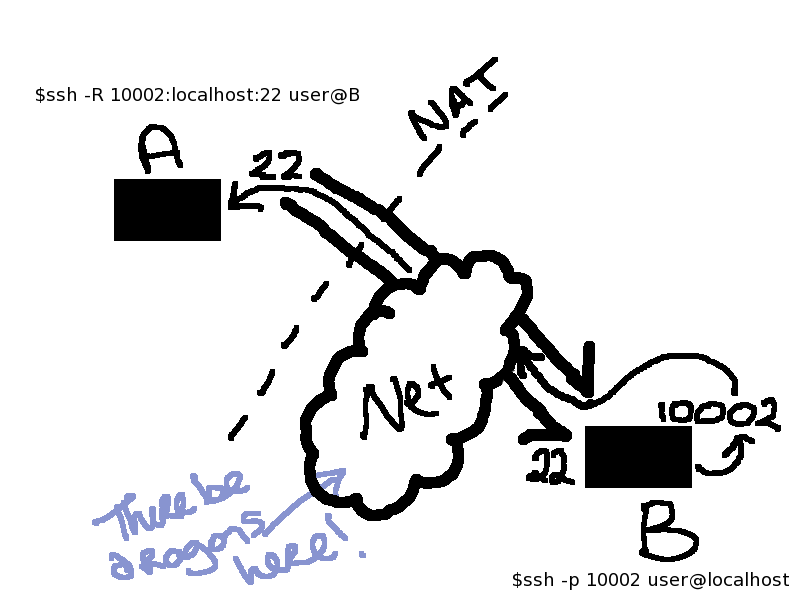 $ssh -R 10002:localhost:22 user@B
NAT
A
22
Net
10002
22
There be
dragons
here!
B
$ssh -p 10002 user@localhost